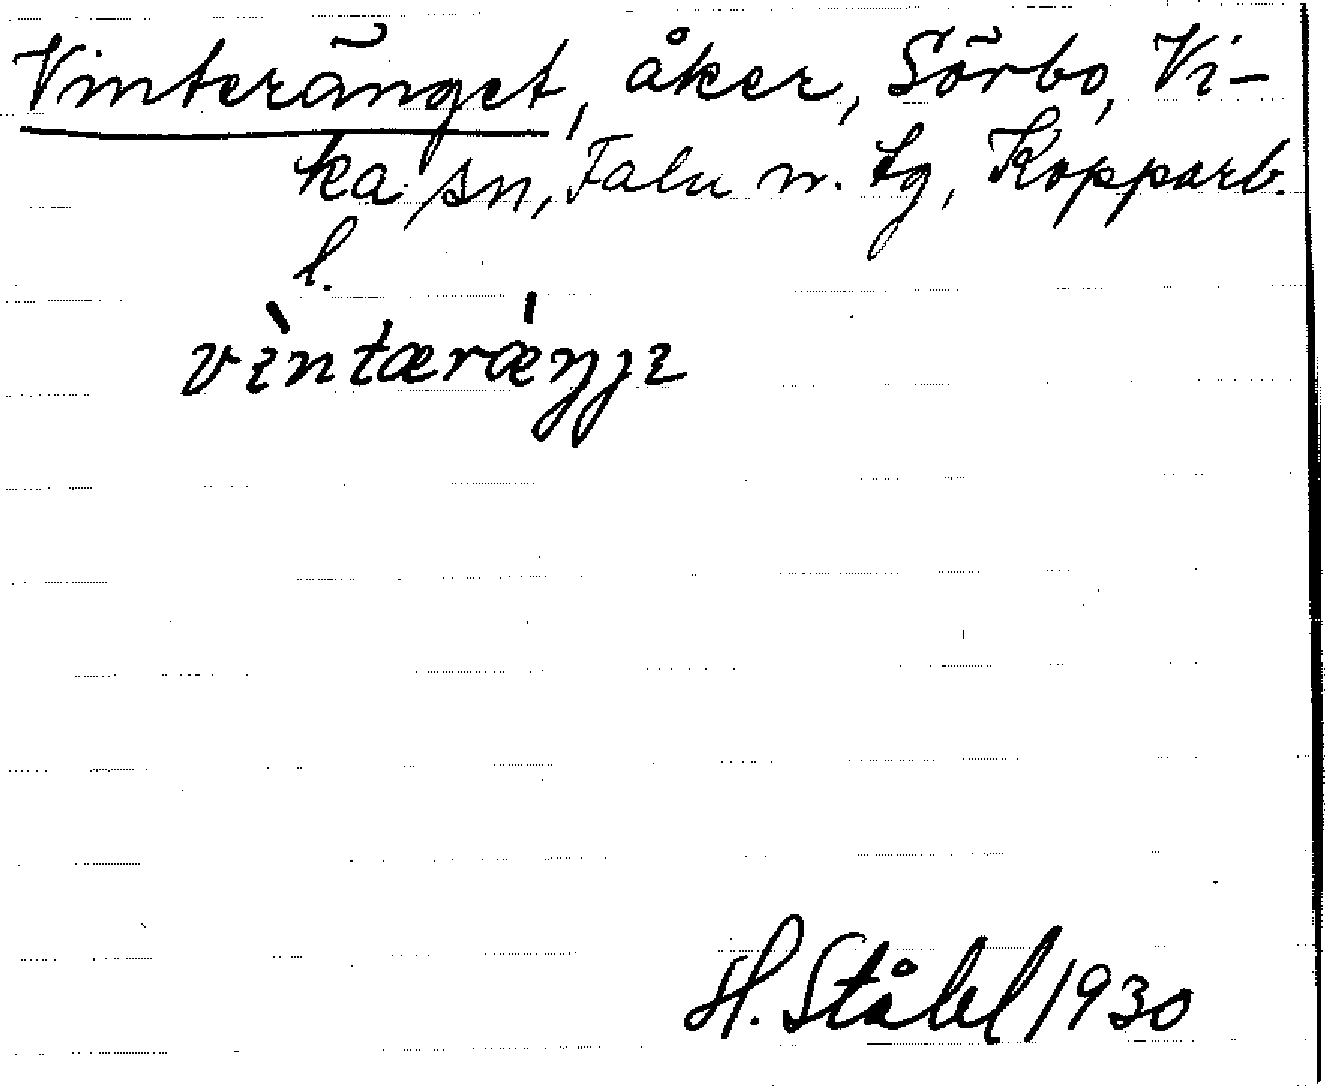 Vinteränget, åker, Sörbo, Vi-
ka sn, Falu n. tg, Kopparb.
l.
vìntærǽŋjɩ
H. Ståhl 1930